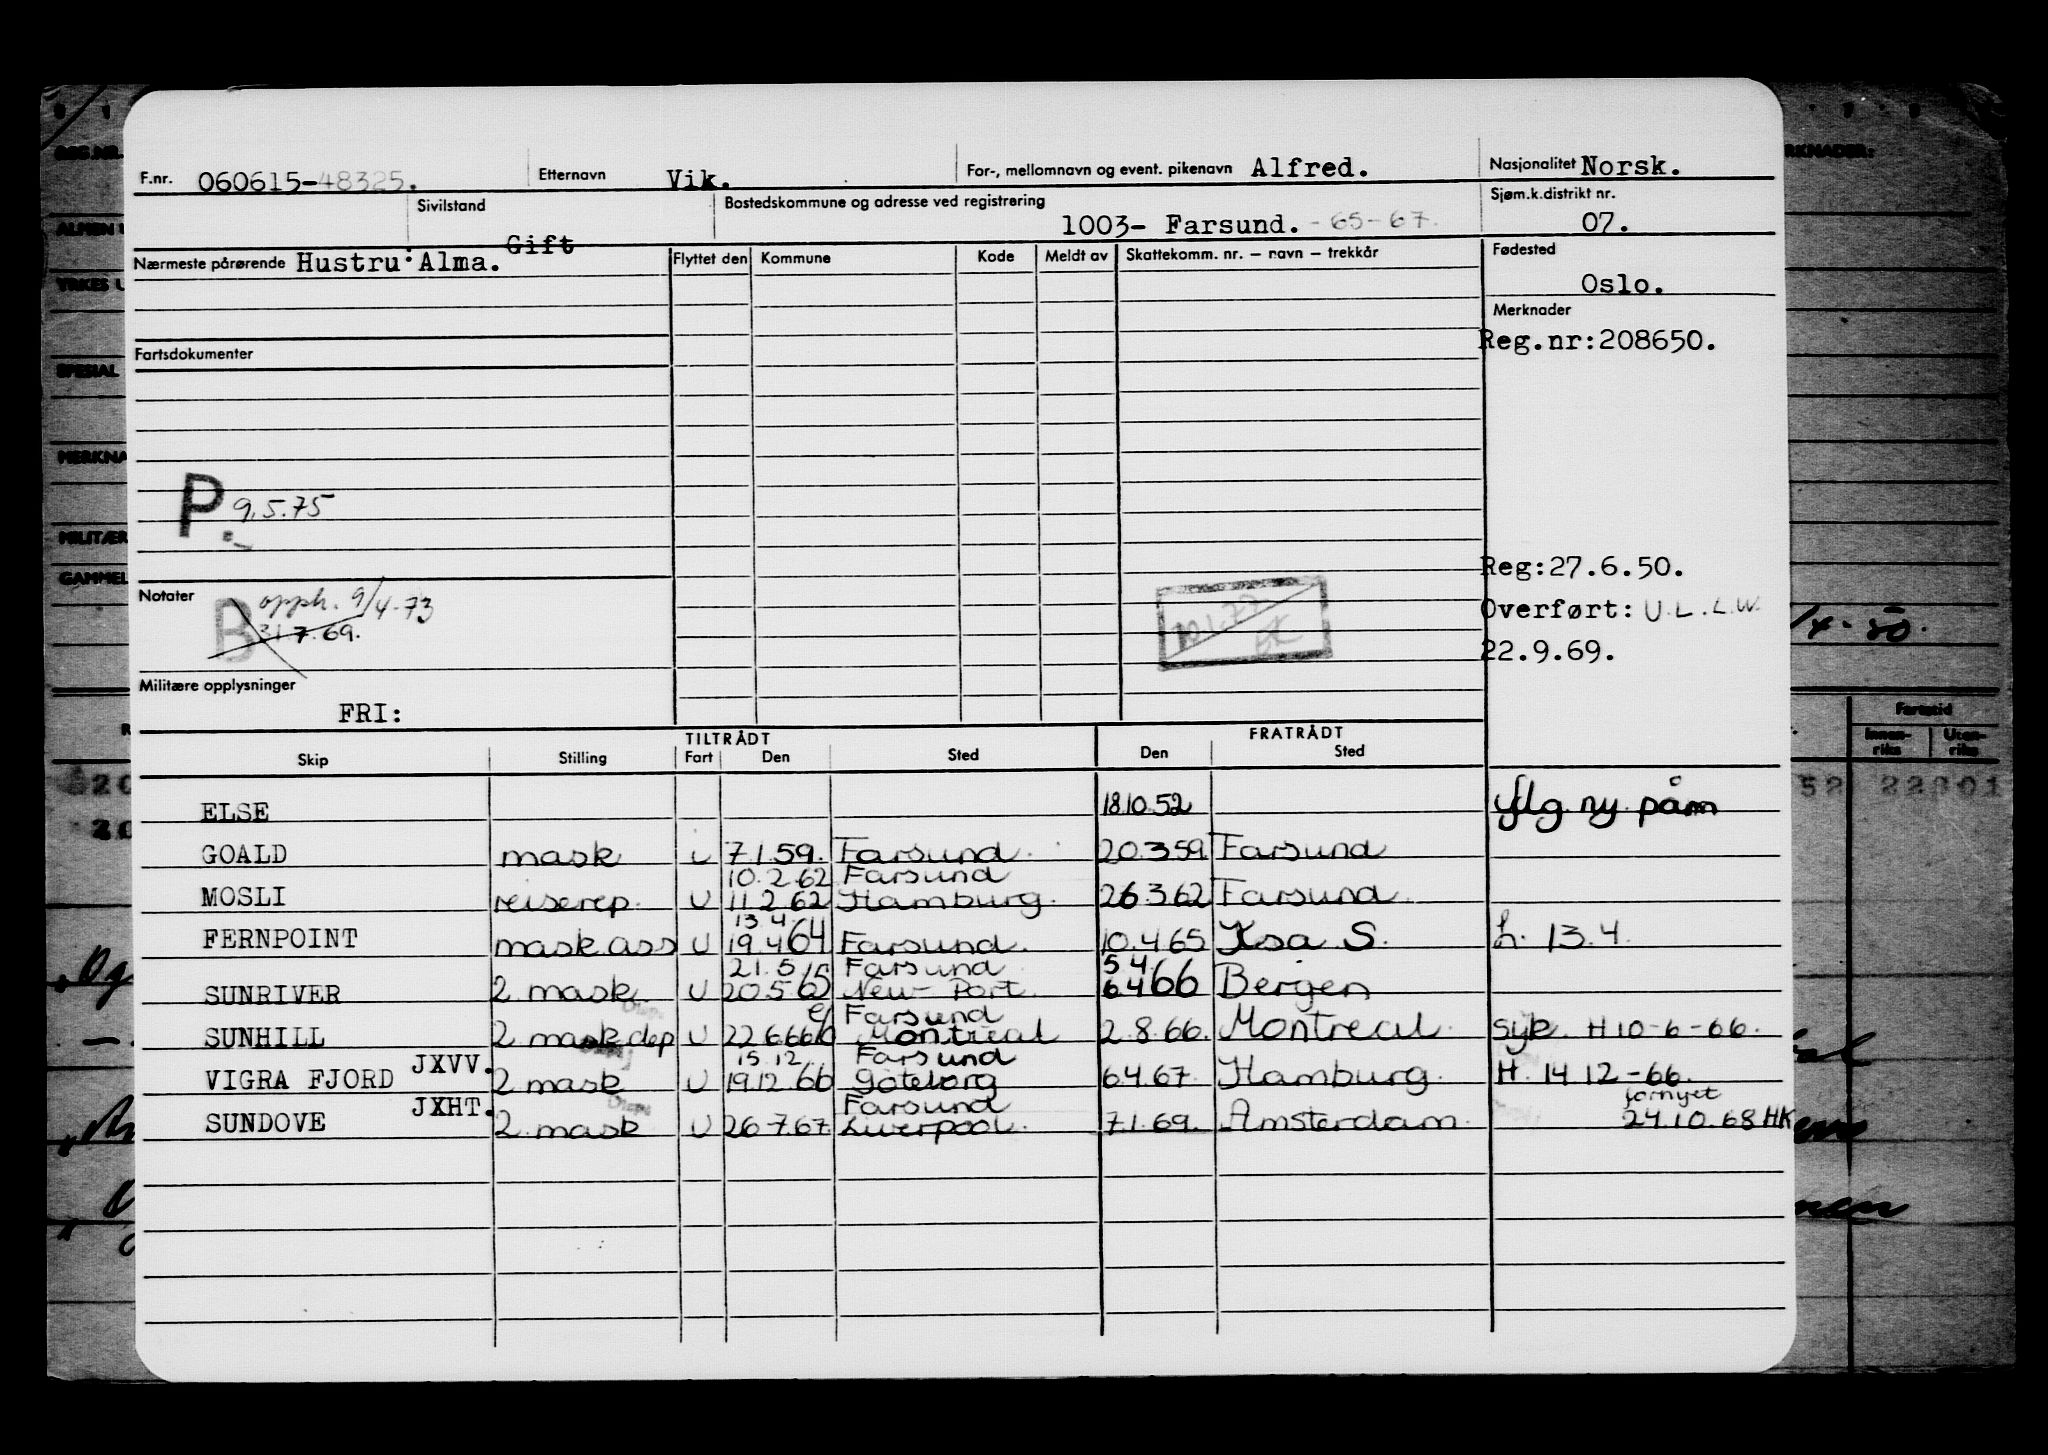 F.nr. 060615-48325. Etternavn Vik. For-, mellomnavn og event. pikenavn Alfred. Nasjonalitet Norsk.
Sivilstand Gift Bostedskommune og adresse ved registrering 1003- Farsund. - 65-67. Sjøm.k.distrikt nr. 07.
Nærmeste pårørende Hustru: Alma. Flyttet den Kommune Kode Meldt av Skattekomm. nr. – navn – trekkår Fødested
Oslo.
Merknader
Reg.nr:208650.
Fartsdokumenter
P. 9.5.75
Reg:27.6.50.
Notater
B opph. 9/4-73
31.7.69.
Overført: U.L.L.W.
22.9.69.
Militære opplysninger
FRI:
TILTRÅDT FRATRÅDT
Skip Stilling Fart Den Sted Den Sted
ELSE 18.10.52 flg. ny påm
GOALD mask U 7.1.59. Farsund. 20.3.59 Farsund
10.2.62 Farsund
MOSLI reiserep. U 11.2.62 Hamburg. 26.3.62 Farsund.
13.4.
FERNPOINT mask.ass U 19.4.64 Farsund. 10.4.65 S. 13.4.
21.5 Farsund 5.4.
SUNRIVER 2. mask. U 20.5.65 New-Port. 6.4.66 Bergen
Farsund
SUNHILL 2. mask.dep U 22.6.66 Montreal 2.8.66. Montreal. syk. H 10-6-66.
JXVV. 15.12. Farsund
VIGRA FJORD 2. mask U 19.12.66 Göteborg 6.4.67. Hamburg. H. 14.12-66.
JXHT. Farsund fornyet
SUNDOVE 2. mask U 26.7.67. Liverpool. 7.1.69. Amsterdam. 24.10.68 HK